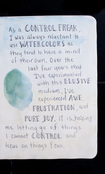 As a CONTROL FREAK,
I was always reluctant to
use WATERCOLORS as
they tend to have a mind
of their own. Over the
last four years that
I've experimented
with this ELUSIVE
medium, I've
experienced AWE
FRUSTRATION, and
PURE JOY. It is helping
me letting go of things
I cannot CONTROL and
focus on things I can.